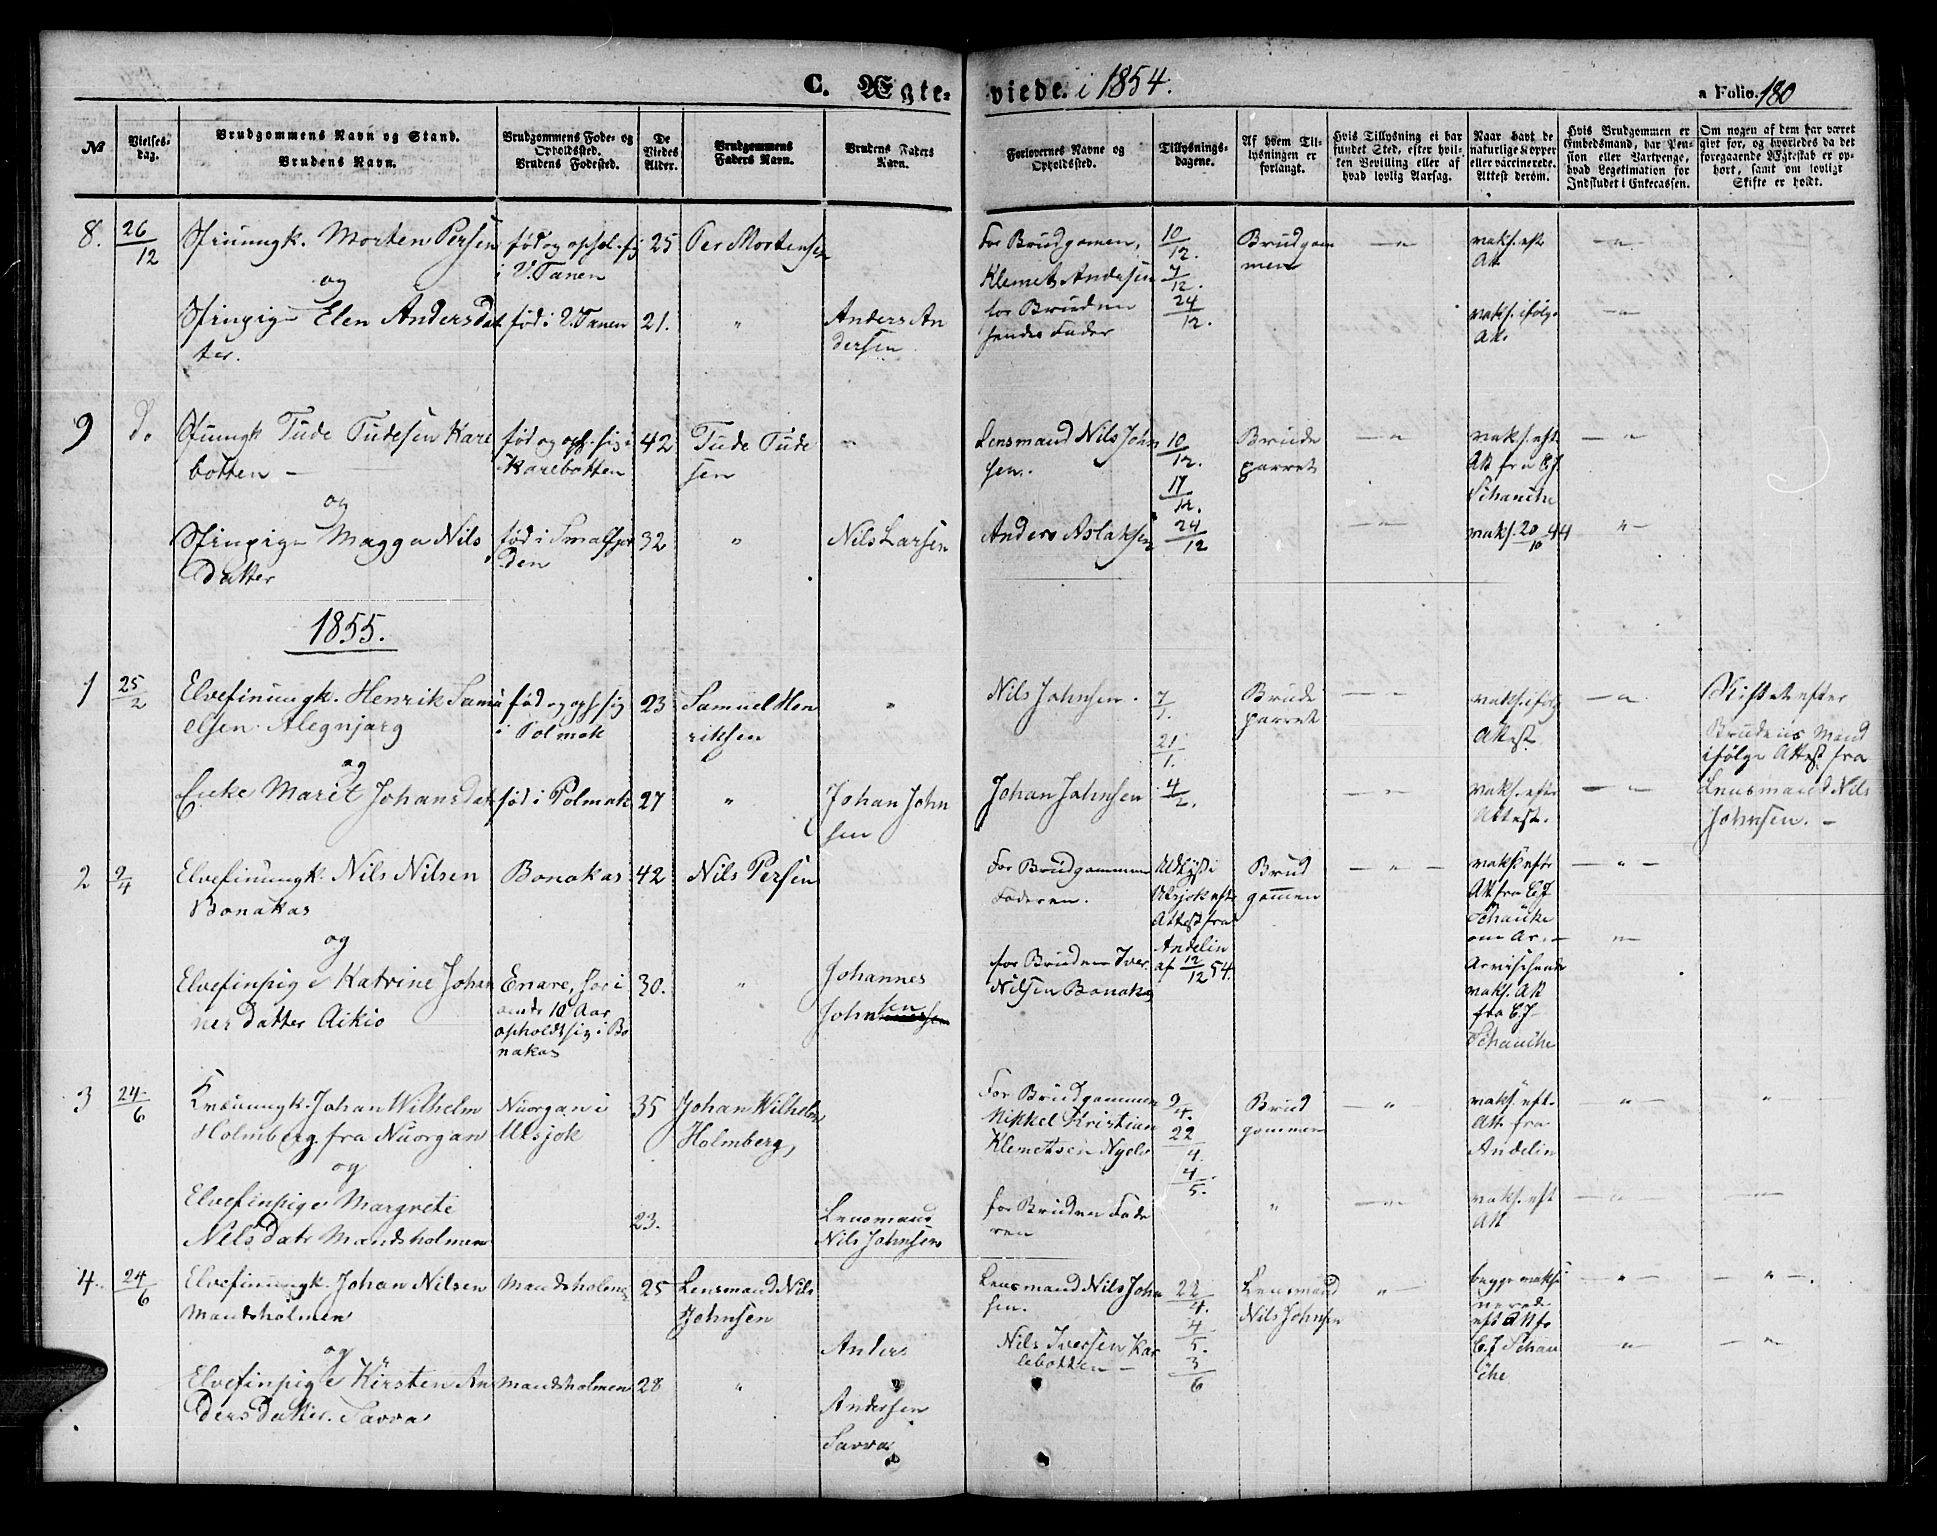 C. Ægteviede. i 1854.
a Folio. 180
№
Vielsesdag.
Brudgommens Navn og Stand.
Brudens Navn.
Brudgommens Føde- og Opholdssted.
Brudens Fødested.
De Viedes Alder.
Brudgommens Faders Navn.
Brudens Faders Navn.
Forlovernes Navne og Opholdssted.
Tillysningsdagene.
Af hvem Tillysningen er forlangt.
Hvis Tillysning ei har fundet Sted, efter hvilken Bevilling eller af hvad lovlig Aarsag.
Naar havt de naturlige Kopper eller vaccinerede. Attest derom.
Hvis Brudgommen er Embedsmand, har Pension eller Vartpenge, hvad Legetimation for Indskudet i Enkecassen.
Om nogen af dem har været givt før, og hvorledes da det foregaaende Ægteskab er ophørt, samt om lovligt Skifte er holdt.
8. 26/12 Sfinungk. Morten Persen
og
Sfinpige Elen Andersdat
ter.
fød og ophol. sig
i V. Tanen
fød i V. Tanen
25
21.
Per Mortensen
"
Anders An
dersen
For Brudgomen,
Klemet Andersen
for Bruden
hendes Fader
10/12.
7/12.
24/12.
Brudgom
men
vaks. eft
Att
vaks. ifølge
Att.
9 D. Sfiungk Tude Tudesen Kare
botten –
og
Sfinpige Magga Nils
datter
fød og oph. sig i
Karebotten
fød i Smalfjor
den
42
32
Tude Tude
sen
"
Nils Larsen
Lensmand Nils John
sen.
Anders Aslaksen
10/12.
17/12.
24/12
Brude
parret
vaks. eft
Att fra C.J.
Schanche
vaks. 20/10 44
1855.
1 25/2 Elvefinungk. Henrik Samu
elsen Alegnjarg
og
Enke Marit Johansdat
fød og oph. sig
i Polmak
fød i Polmak
23
27
Samuel Hen
riksen
"
Johan John
sen
Nils Johnsen.
Johan Johnsen
7/1.
21/1.
4/2.
Brude
parret
vaks. ifølg
Attest
vaks. efter
Attest.
Skiftet efter
Brudens Mand
ifølge Attest fra
Lensmand Nils
Johnsen. –
2 9/4 Elvefinungk. Nils Nilsen
Bonakas
og
Elvefinpige Katrine Johan
nes datter Aikio
Bonakas
Enare, har i
omtr 10 Aar
opholdt sig i Bo
nakas
42
30.
Nils Persen
"
Johannes
Johnsen
For Brudgommen
Faderen.
for Bruden Iver
Nilsen Bonakas
Udlyst i
Utsjok efter
Attest fra
Andelin
af 12/12 54.
Brud
gommen
vaks. efter
Att fra C.J.
Schanche
vaks. Att
fra C.J
Schanche
3 24/6 Kvænungk. Johan Wilhelm
Holmberg. fra Nuorgan
og
Elvefinpige Margrete
Nils datr Mandsholmen
Nuorgan i
Utsjok
35
23.
Johan Wilhelm
Holmberg,
Lensmand
Nils Johnsen
For Brudgommen
Mikkel Kristian
Klemetsen Nyelv
for Bruden Fade
ren
9/4.
22/4.
4/5.
Brud
gommen
vaks. eft.
Att. fra
Andelin
vaks. eft
Att
4. 24/6 Elvefinungk. Johan Nilsen
Mandsholmen
og
Elvefinpige Kirsten An
ders datter. Savva
Mandsholmen
Mandsholmen
25
28
Lensmand Nils
Johnsen
"
Anders
Andersen
Savva
Lensmand Nils John
sen.
Nils Iversen Kar
lebotten –
22/4.
4/5.
3/6
Lensmand
Nils Johnsen
begge vaksi
nerede
eft Att fr
C.J Schan
che